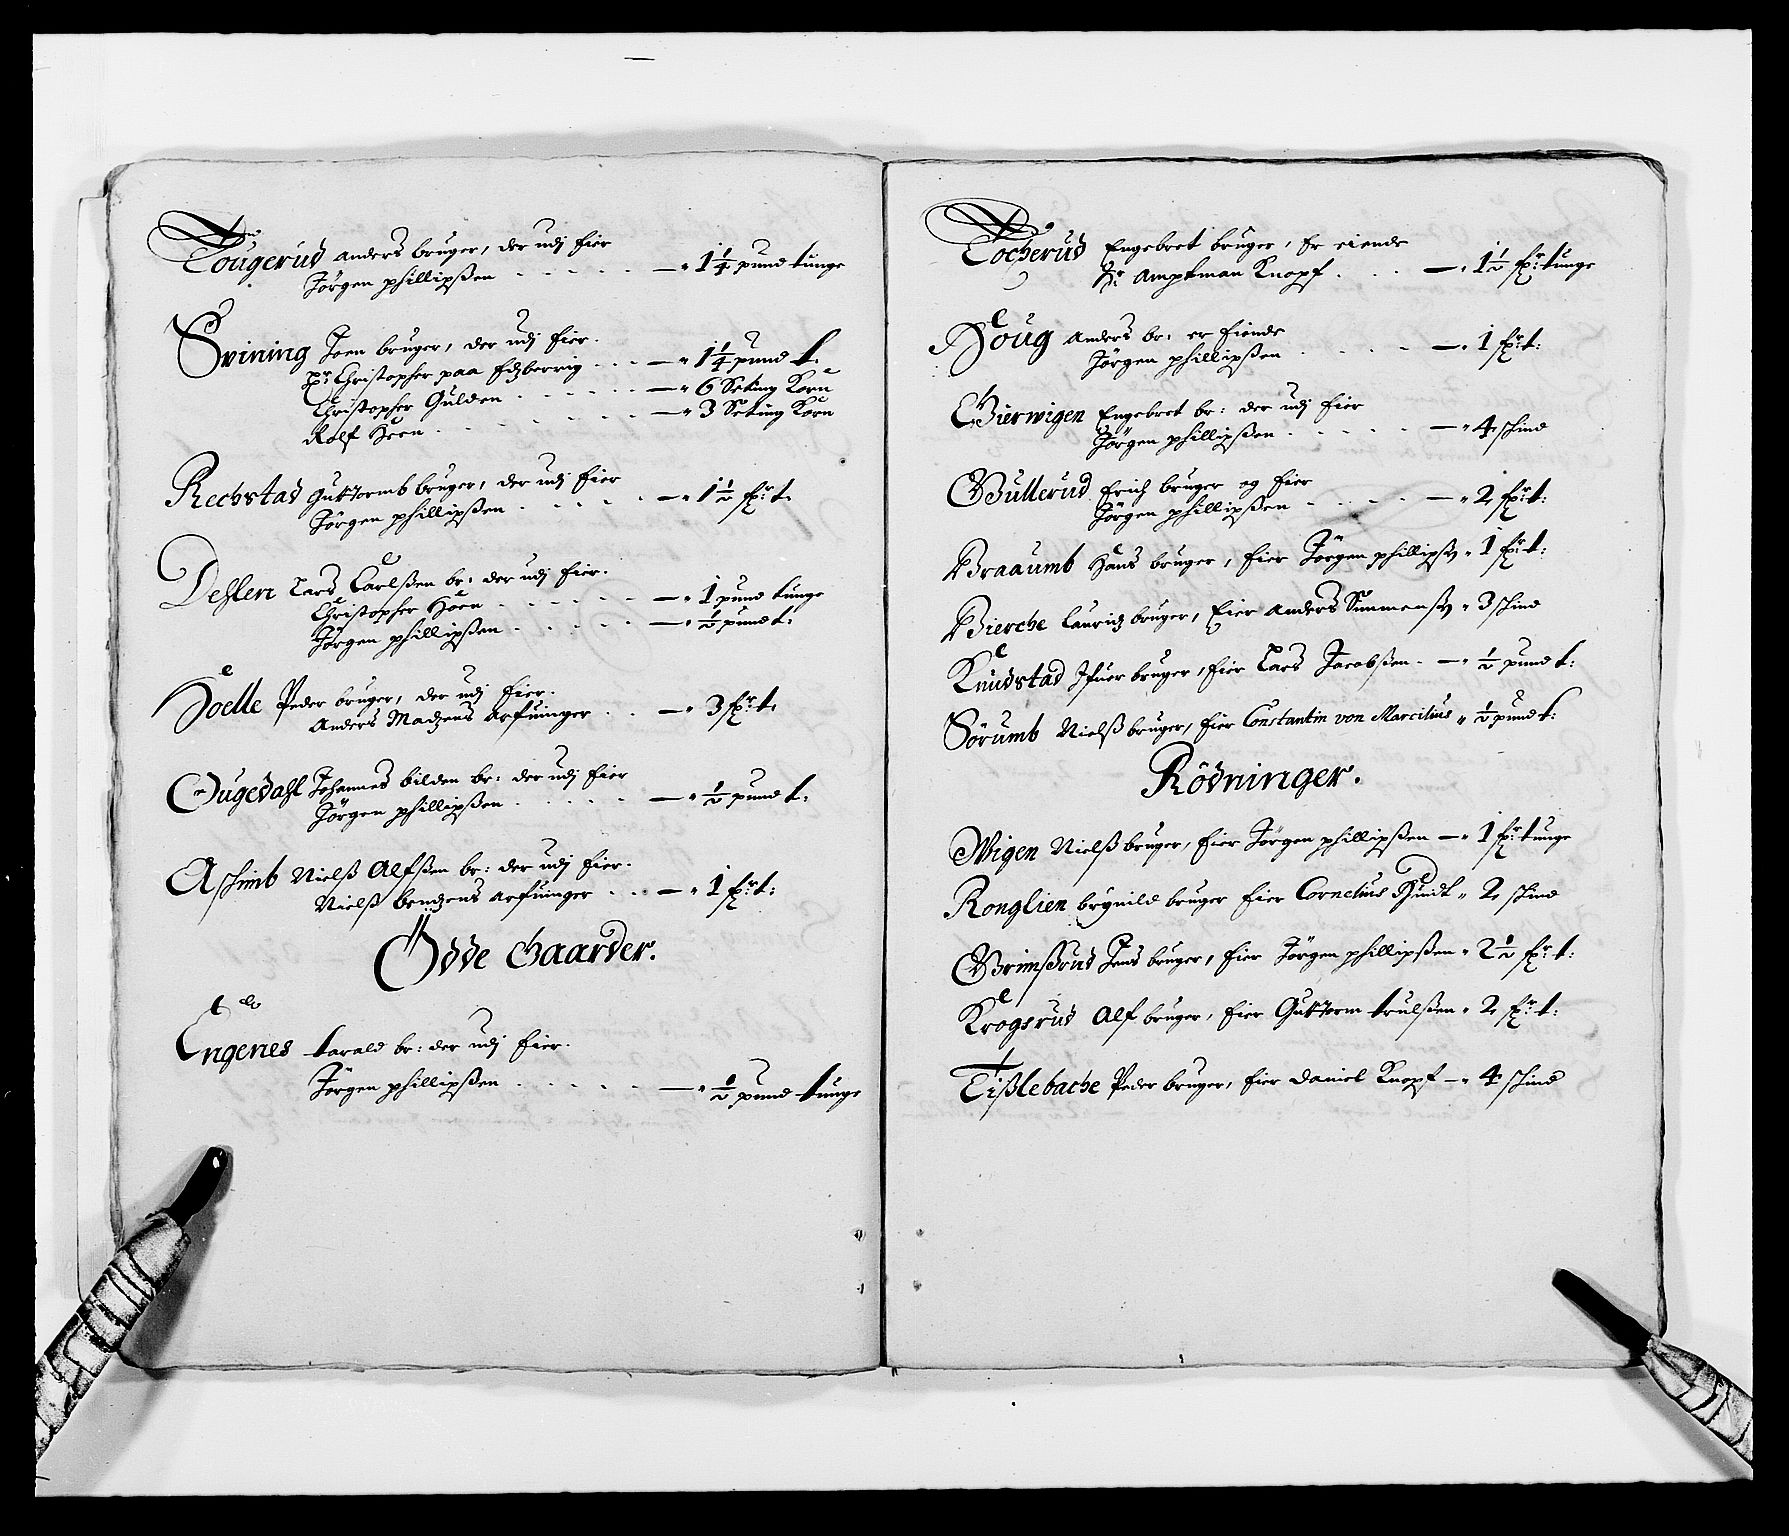 Tougerud anders bruger, der udj Eier
Jörgen phillipßen - - - - - — „ 1¼ pund tunge
Svining Joen bruger, der udj Eier.
Hr: Christopher paa Eßberrig - - - — „ 1¼ pund t.
Christopher Gulden - - - - - — „ 6 Setting Korn
Rolf Hoen - - - - - - — „ 3 Setting Korn
Rechstad Guttormb bruger, der udj Eier
Jörgen phillipßen - - - - - — „ 1½ fr: t.
Dehlen Lars Carlßen br: der udj Eier.
Christopher Hoen - - - - - — „ 1 pund tunge
Jörgen phillipßen - - - - - — „ ½ pund t:
Hoelle Peder bruger, der udj Eier.
Anders Madzens Arfuinger - - — „ 3 fr: t.
Ougedahl Johannes bilden br: der udj Eier
Jörgen phillipßen - - - - - — „ ½ pund t.
Aschimb Nielß Alfßen br: der udj Eier.
Nielß bendzens Arfuinger - - - — „ 1 fr: t:
Ödde Gaarder.
Engenes tarald br: der udj Eier.
Jörgen phillipßen - - - - - — „ ½ pund tunge
Tocherud Engebret bruger, Er eiende
Hr: Amptman Knopf - - - — „ 1½ fr: tunge
Houg Anders br: er Eiende
Jörgen phillipßen - - - - — „ 1 fr: t:
Bierwigen Engebret br: der udj Eier
Jörgen phillipßen - - - - - — „ 4 schind
Bullerud Erich bruger og Eier
Jörgen phillipßen - - - - — „ 2 fr: t:
Braaumb Hans bruger, Eier Jörgen phillipß „ 1 fr: t:
Bierche Lauridz bruger, Eier Anders Simmenß „ 3 schind
Knudstad Ifuer bruger, Eier Lars Jacobßen - — „ ½ pund t:
Sörumb Nielß bruger, Eier Constantin von Marcilius „ ½ pund t:
Rödninger.
Wigen Nielß bruger, Eier Jörgen phillipßen — „ 1 fr: tunge
Ronglien brynild bruger Eier Cornelius „ 2 schind
Grimßrud Jens bruger, Eier Jörgen phillipßen „ 2½ fr: t:
Krogsrud Alf bruger, Eier Guttorm trulßen „ 2 fr: t:
Tißlebache Peder bruger, Eier Daniel Knopf — „ 4 schind